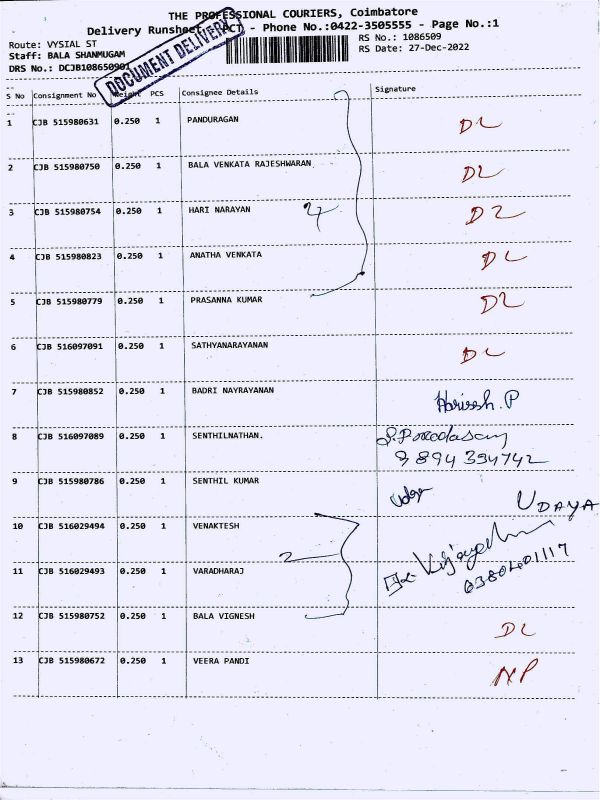 THE PROFESSIONAL COURIERS, Coimbatore
Delivery Runsheet - PCT - Phone No.:0422-3505555 - Page No.:1
Route: VYSIAL ST RS No.: 1086509
Staff: BALA SHANMUGAM RS Date: 27-Dec-2022
DRS No.: DCJB108650901
DOCUMENT DELIVERY
S No Consignment No Weight PCS Consignee Details Signature
1 CJB 515980631 0.250 1 PANDURAGAN DL
2 CJB 515980750 0.250 1 BALA VENKATA RAJESHWARAN DL
3 CJB 515980754 0.250 1 HARI NARAYAN DL
4 CJB 515980823 0.250 1 ANATHA VENKATA DL
5 CJB 515980779 0.250 1 PRASANNA KUMAR DL
6 CJB 516097091 0.250 1 SATHYANARAYANAN DL
7 CJB 515980852 0.250 1 BADRI NAYRAYANAN Harissh.P
8 CJB 516097089 0.250 1 SENTHILNATHAN.
9894394742
9 CJB 515980786 0.250 1 SENTHIL KUMAR UDAYA
10 CJB 516029494 0.250 1 VENAKTESH
2
11 CJB 516029493 0.250 1 VARADHARAJ
12 CJB 515980752 0.250 1 BALA VIGNESH DL
13 CJB 515980672 0.250 1 VEERA PANDI NP